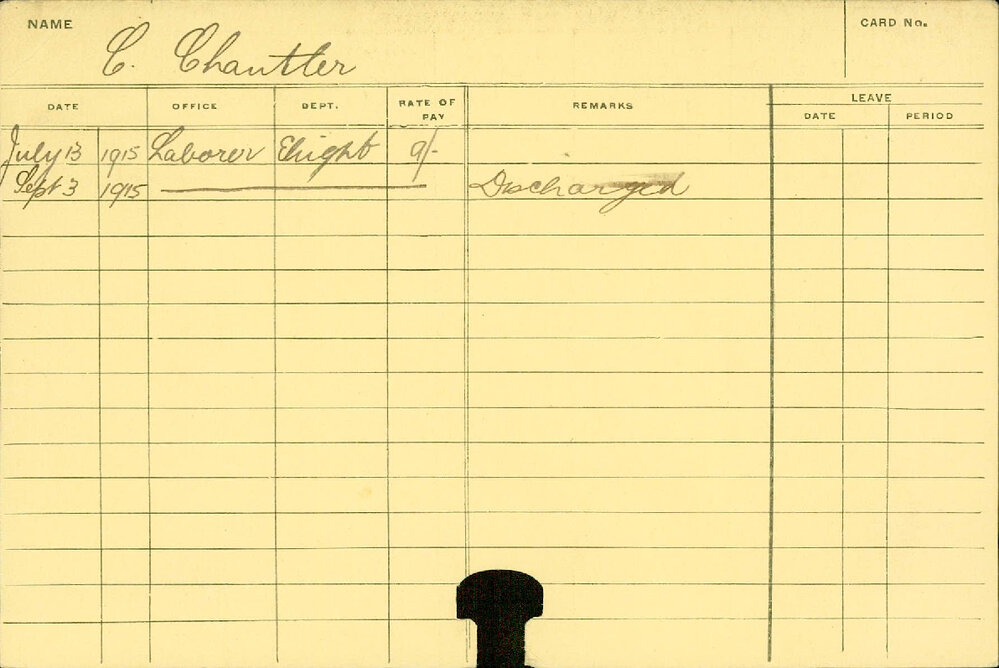 NAME
C. Chantler
CARD No.
DATE OFFICE DEPT. RATE OF PAY REMARKS LEAVE
DATE PERIOD
July 13 1915 Laborer Elight 9/-
Sept 3 1915 Discharged